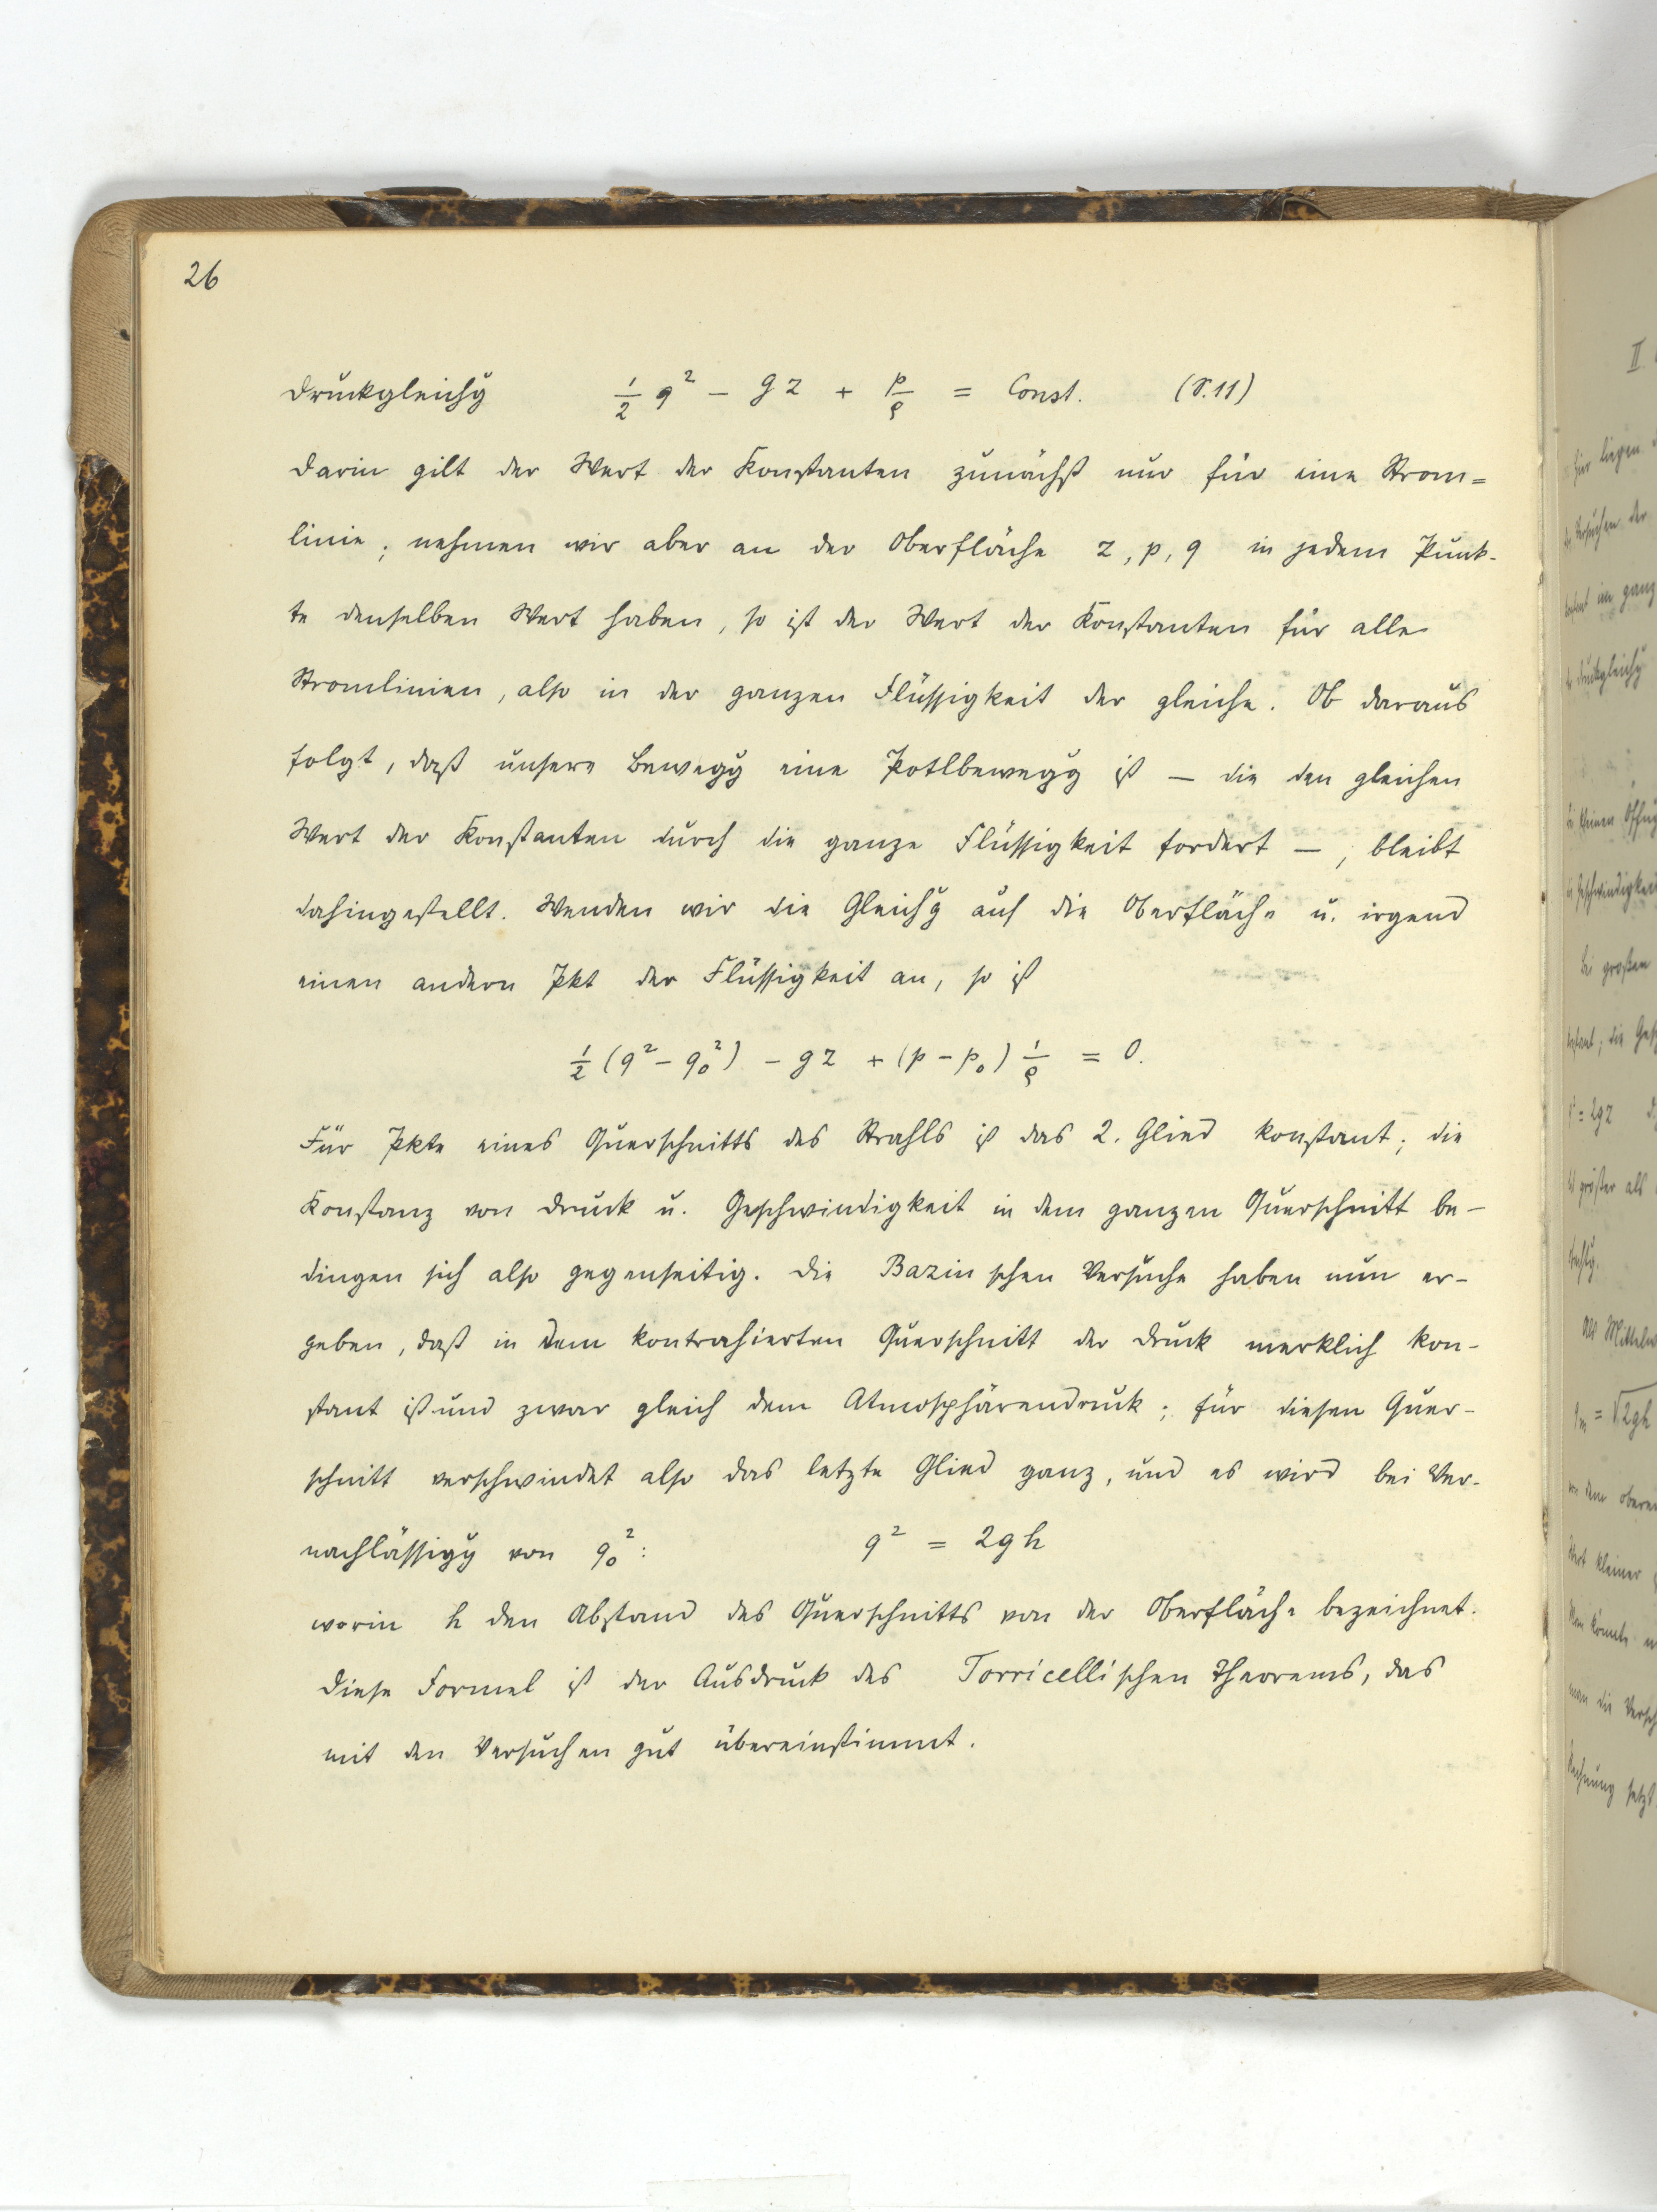 26
Druckgleichg ½ q² − gz + p/ρ = Const. (S. 11)
Darin gilt der Wert der Konstanten zunächst nur für eine Strom=
linie; nehmen wir aber an der Oberfläche z, p, q in jedem Punk-
te denselben Wert haben, so ist der Wert der Konstanten für alle
Stromlinien, also in der ganzen Flüssigkeit der gleiche. Ob daraus
folgt, daß unsere Bewegg eine Potlbewegg ist – die den gleichen
Wert der Konstanten durch die ganze Flüssigkeit fordert –, bleibt
dahingestellt. Wenden wir die Gleichg auf die Oberfläche u. irgend
einen andern Pkt der Flüssigkeit an, so ist
½ (q² − q₀²) − gz + (p − p₀) 1/ρ = 0.
Für Pkte eines Querschnitts des Strahls ist das 2. Glied konstant; die
Konstanz von Druck u. Geschwindigkeit in dem ganzen Querschnitt be-
dingen sich also gegenseitig. Die Bazin schen Versuche haben nun er-
geben, daß in dem kontrahierten Querschnitt der Druck merklich kon-
stant ist und zwar gleich dem Atmosphärendruck; für diesen Quer-
schnitt verschwindet also das letzte Glied ganz, und es wird bei Ver-
nachlässigg von q₀²: q² = 2gh
worin h den Abstand des Querschnitts von der Oberfläche bezeichnet.
Diese Formel ist der Ausdruck des Torricellischen Theorems, das
mit den Versuchen gut übereinstimmt.
II.
für liegen
Versuchen der
im ganz
Druckgleichg
kleinen Öffng
Geschwindigkei
bei großen
die Ges
= 2gz
größer als
Als Mittelw
qₘ = √2gh
dem obere
Wert kleiner
Man könnte
man die Versch
Rechnung setzt